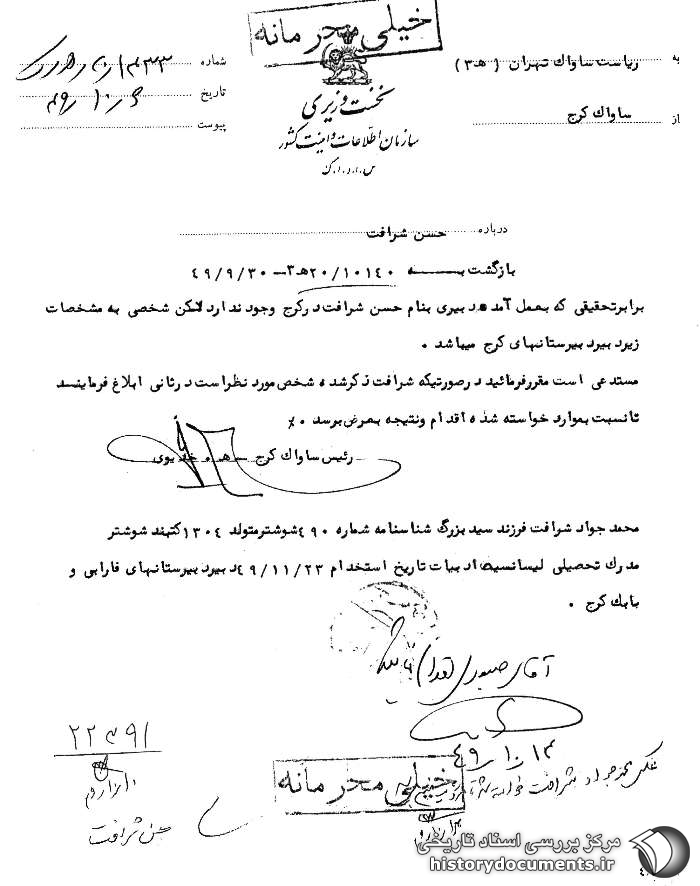 خیلی محرمانه
به ریاست ساواک تهران ( ه‍ ۳ )
از ساواک کرج
نخست وزیری
سازمان اطلاعات و امنیت کشور
س.ا.و.ا.ک
شماره
تاریخ
پیوست
درباره حسن شرافت
بازگشت به ۲۰/۱۰۱۴۰ ه‍ ۳ – ۴۹/۹/۳۰
برابر تحقیقی که بعمل آمده دبیری بنام حسن شرافت در کرج وجود ندارد لکن شخصی به مشخصات
زیر دبیر دبیرستانهای کرج میباشد .
مستدعی است مقرر فرمائید در صورتیکه شرافت ذکر شده شخص مورد نظر است در ثانی ابلاغ فرمایند
تا نسبت بموارد خواسته شده اقدام و نتیجه بعرض برسد . ٪
رئیس ساواک کرج – ه‍ . خدیوی
محمد جواد شرافت فرزند سید بزرگ شناسنامه شماره ۴۹۰ شوشتر متولد ۱۳۰۴ کتبند شوشتر
مدرک تحصیلی لیسانسیه ادبیات تاریخ استخدام ۴۹/۱۱/۲۳ دبیر دبیرستانهای فارابی و
بابک کرج .
آقای
۴۹/۱۰/۱۴
محمد جواد شرافت
۲۲۳۹۱
خیلی محرمانه
حسن شرافت
مرکز بررسی اسناد تاریخی
historydocuments.ir